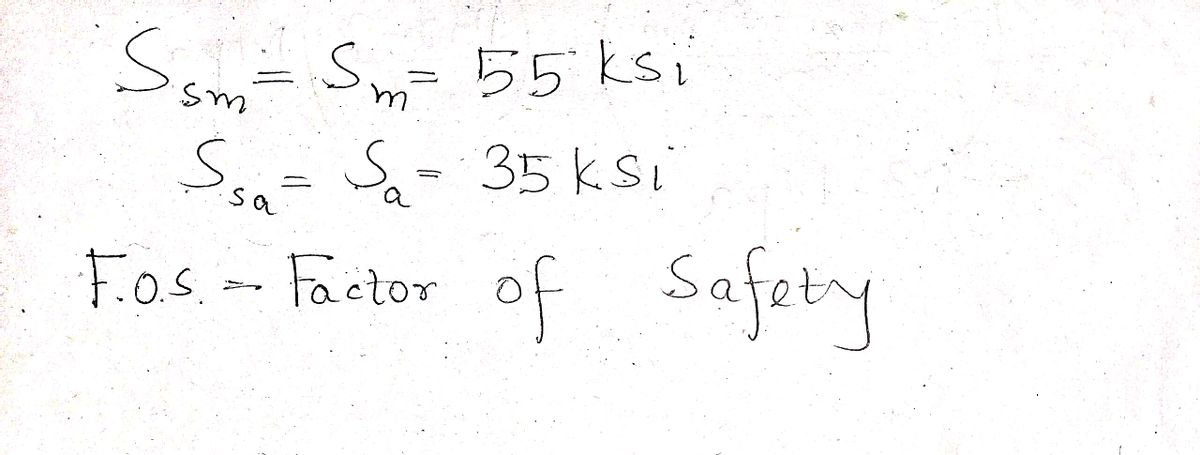 Ssm = Sm = 55 ksi
Ssa = Sa = 35 ksi
F.O.S. = Factor of Safety